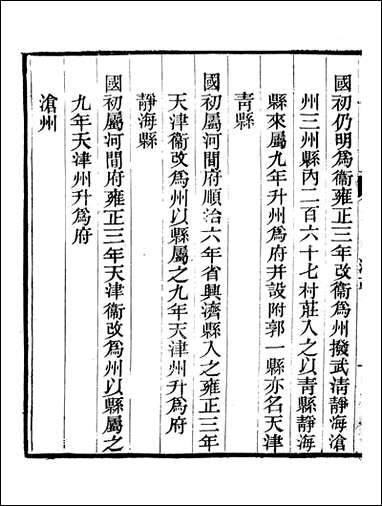 國初仍明爲衞雍正三年改衞爲州撥武淸靜海滄
州三州縣內二百六十七村莊入之以靑縣靜海
縣來屬九年升州爲府并設附郭一縣亦名天津
靑縣
國初屬河閒府順治六年省興濟縣入之雍正三年
天津衞改爲州以縣屬之九年天津州升爲府
靜海縣
國初屬河閒府雍正三年天津衞改爲州以縣屬之
九年天津州升爲府
滄州